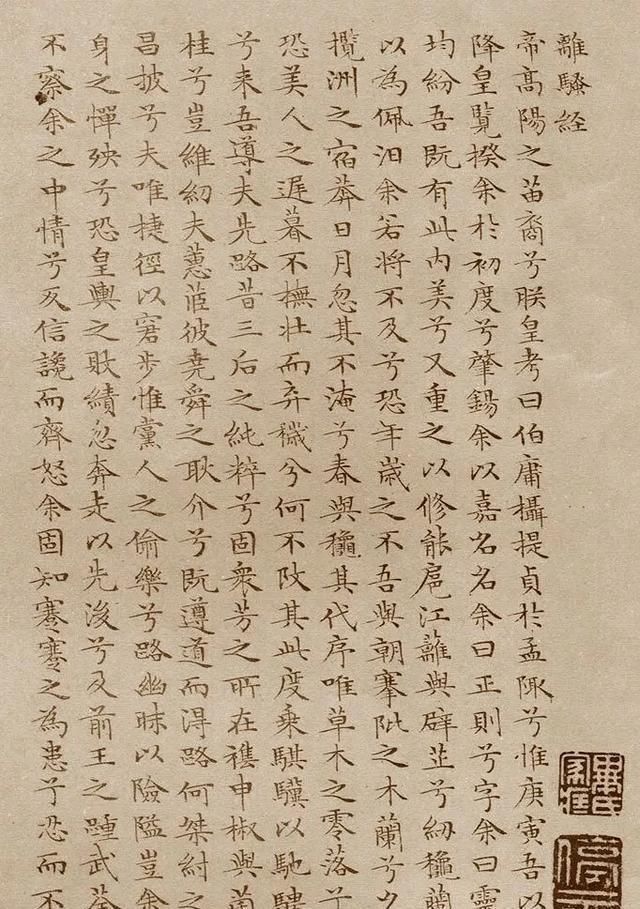 離騷經
帝高陽之苗裔兮朕皇考曰伯庸攝提貞於孟陬兮惟庚寅吾以
降皇覽揆余於初度兮肇錫余以嘉名名余曰正則兮字余曰靈
均紛吾既有此內美兮又重之以修能扈江蘺與辟芷兮紉龝蘭
以為佩汨余若將不及兮恐年歲之不吾與朝搴阰之木蘭兮夕
攬洲之宿莽日月忽其不淹兮春與龝其代序唯草木之零落兮
恐美人之遲暮不撫壯而弃穢兮何不改其此度乘騏驥以馳騁
兮来吾導夫先路昔三后之純粹兮固衆芳之所在襍申椒與菌
桂兮豈維紉夫蕙茝彼堯舜之耿介兮既遵道而得路何桀紂之
昌披兮夫唯捷徑以窘步惟黨人之偷樂兮路幽昧以險隘豈余
身之憚殃兮恐皇輿之敗績忽奔走以先後兮及前王之踵武荃
不察余之中情兮反信讒而齊怒余固知謇謇之為患兮忍而不